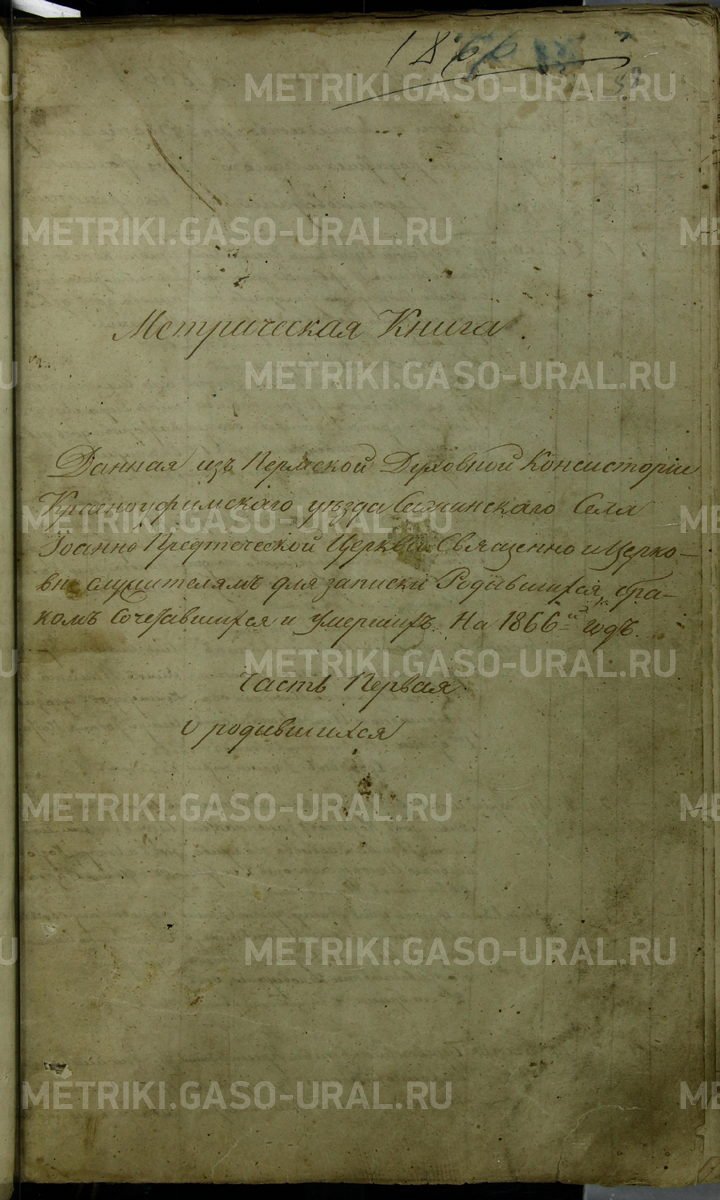 1866
METRIKI.GASO-URAL.RU
METRIKI.GASO-URAL.RU
Метрическая Книга.
METRIKI.GASO-URAL.RU
Данная изъ Пермской Духовной Консисторіи
Красноуфимскаго уѣзда Сажинскаго Села
METRIKI.GASO-URAL.RU
Іоанно Предтеческой Церкви Священно и Церко-
вно служителямъ для записки Родившихся, бра-
комъ Сочетавшихся и умершихъ. На 1866й годъ.
METRIKI.GASO-URAL.RU
Часть Первая.
о родившихся
METRIKI.GASO-URAL.RU
METRIKI.GASO-URAL.RU
METRIKI.GASO-URAL.RU